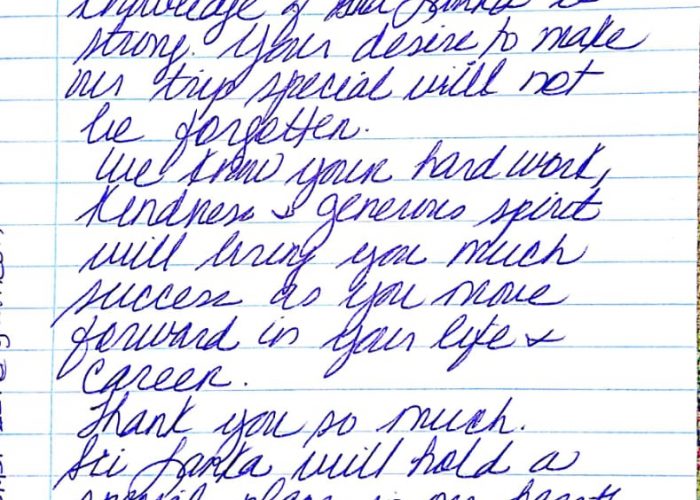 knowledge of Sri Lanka is
strong. Your desire to make
our trip special will not
be forgotten.
We know your hard work,
kindness & generous spirit
will bring you much
success as you move
forward in your life &
career.
Thank you so much.
Sri Lanka will hold a
special place in our hearts